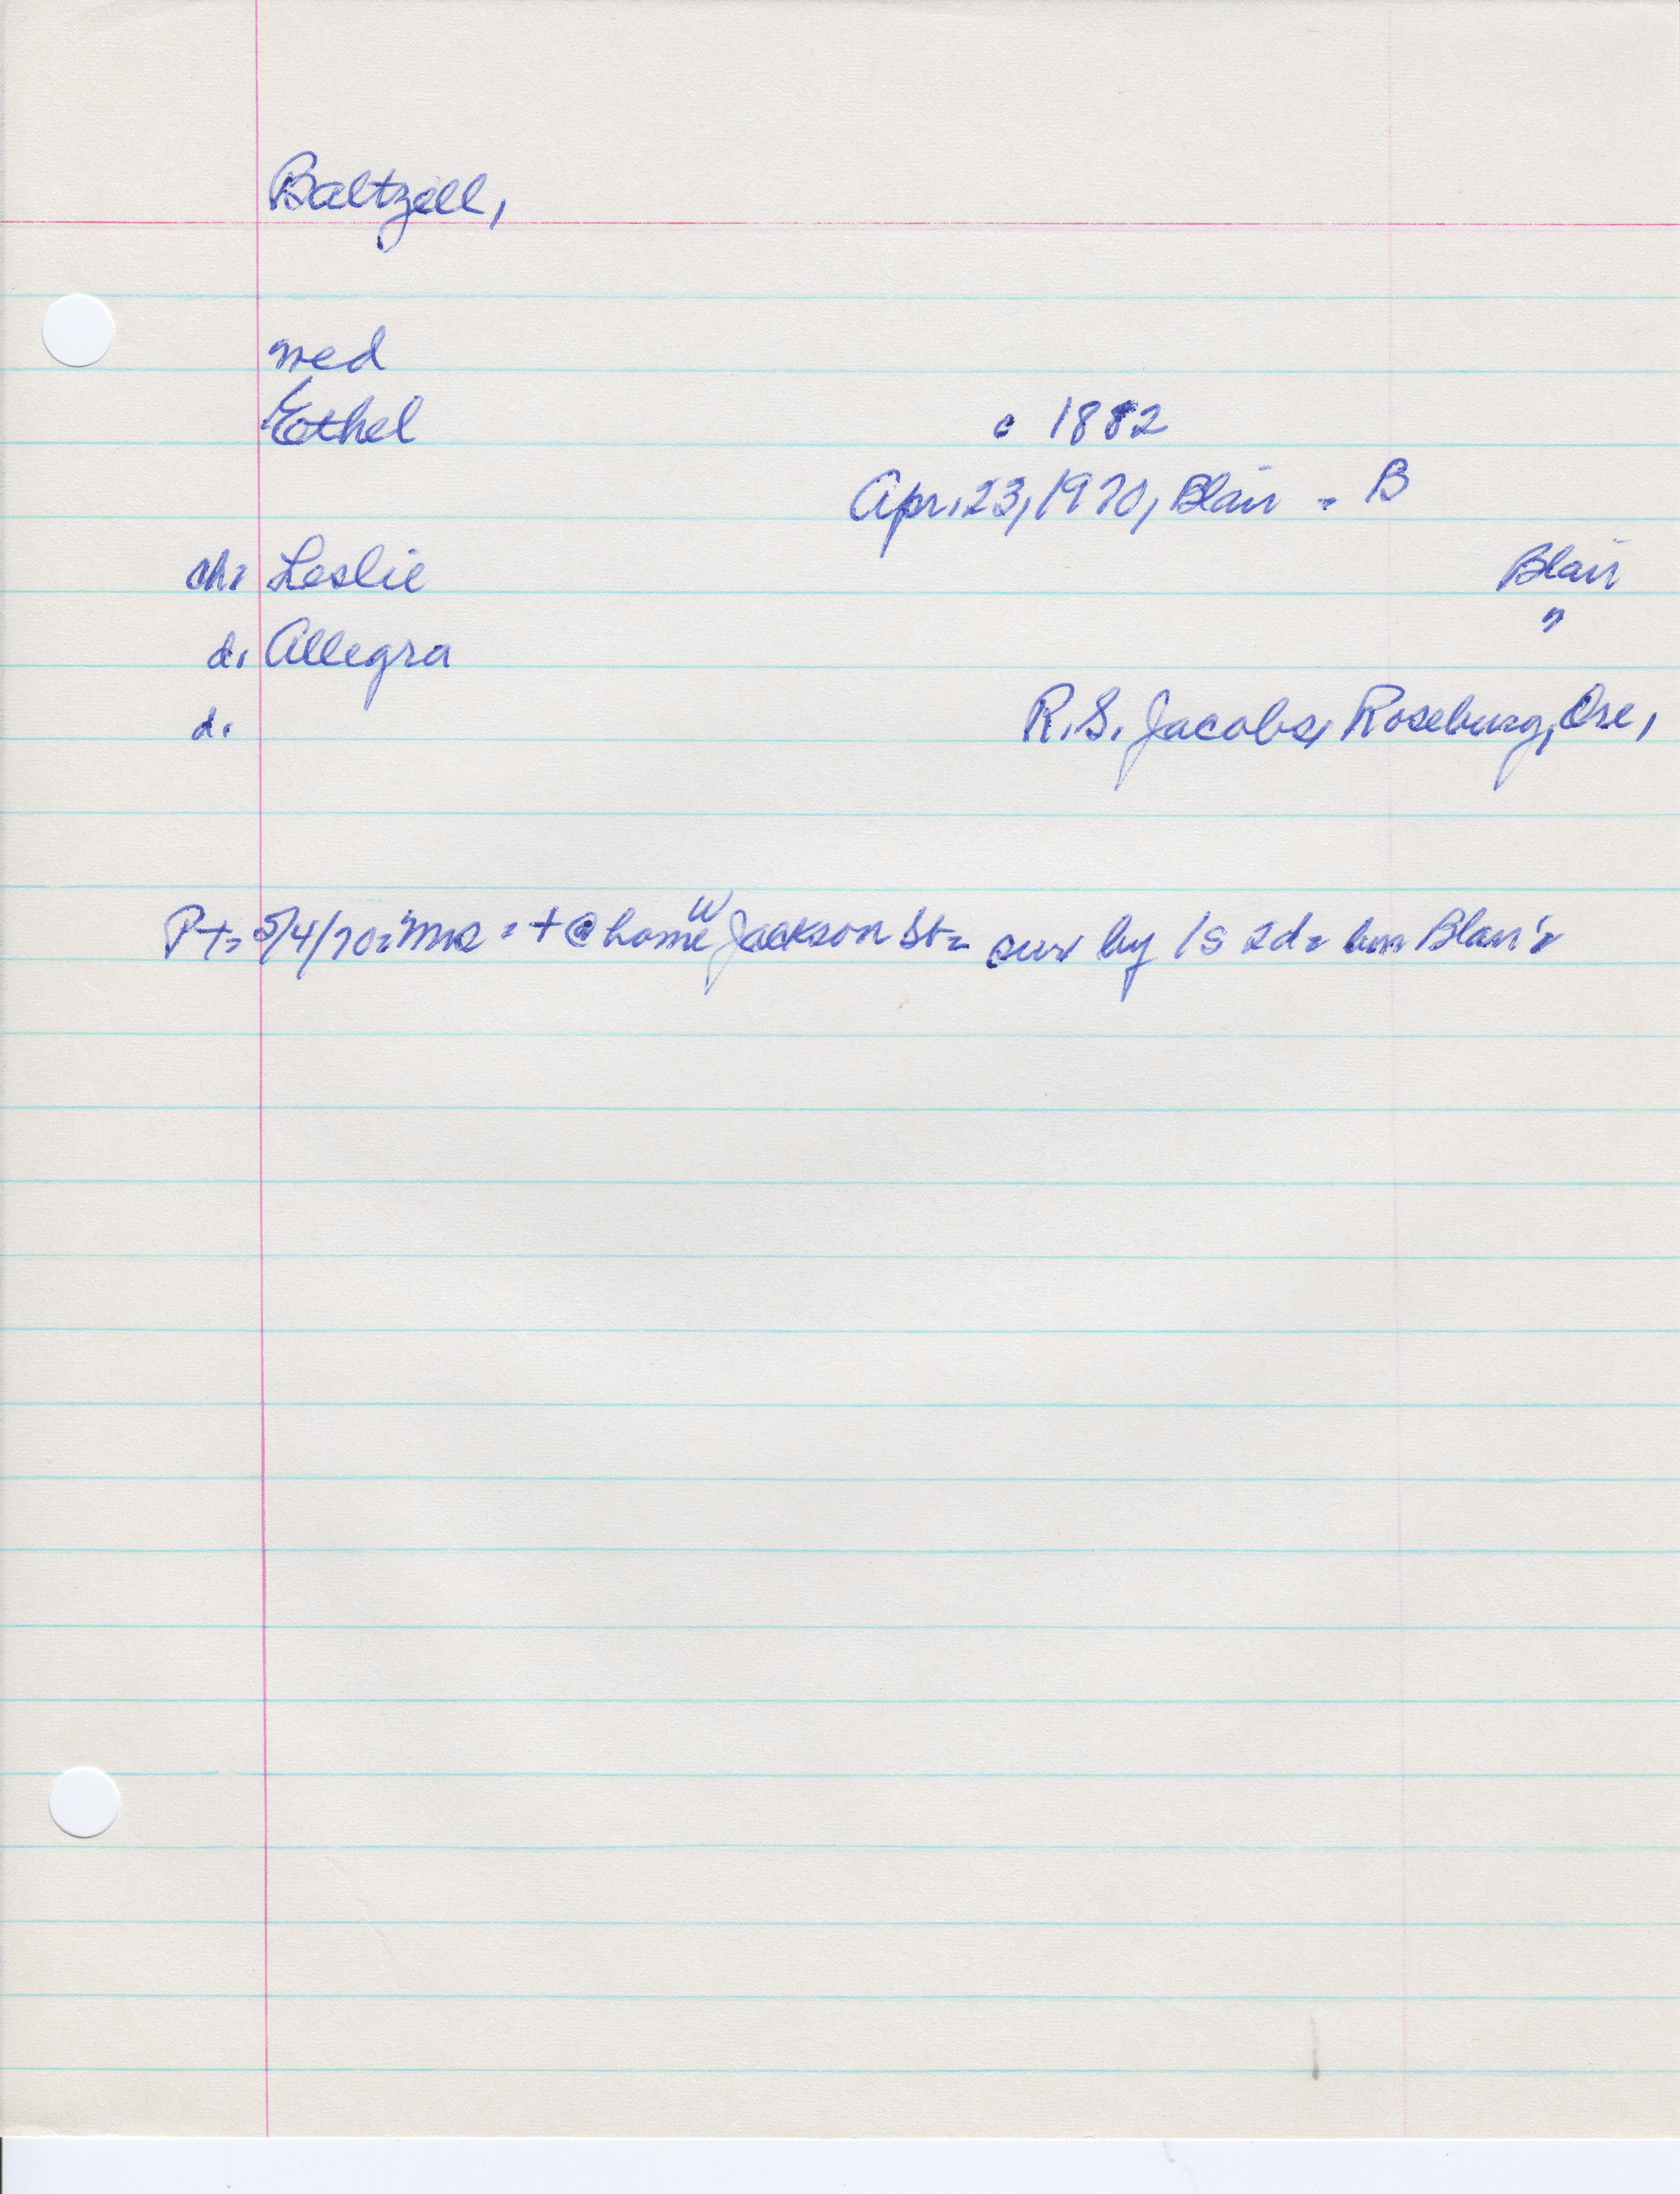 Baltzell,
Ned
Ethel c 1882
Apr. 23, 1970, Blair - B
ch: Leslie Blair
d. Allegra "
d. R.S. Jacobs, Roseburg, Ore,
Pt= 5/4/70= Mrs = + @ home W Jackson St= surv by 1s 2d= Blair =